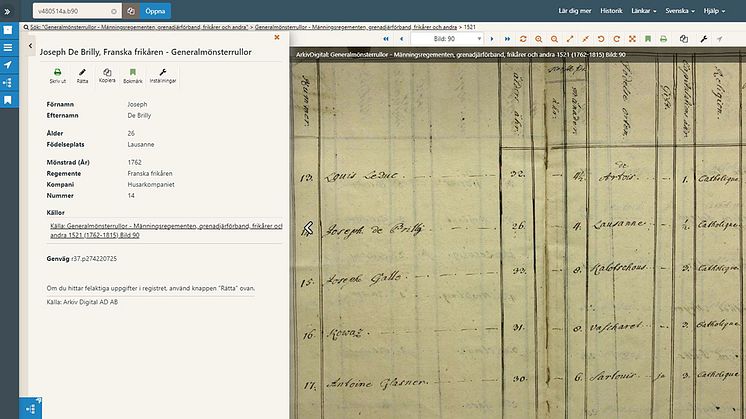 v480514a.b90
Öppna
Lär dig mer Historik Länkar Svenska Hjälp
Sök: "Generalmönsterrullor - Männingsregementen, grenadjärförband, frikårer och andra" > Generalmönsterrullor - Männingsregementen, grenadjärförband, frikårer och andra > 1521
Joseph De Brilly, Franska frikåren - Generalmönsterrullor
Skriv ut Rätta Kopiera Bokmärk Inställningar
Förnamn Joseph
Efternamn De Brilly
Ålder 26
Födelseplats Lausanne
Mönstrad (År) 1762
Regemente Franska frikåren
Kompani Husarkompaniet
Nummer 14
Källor
Källa: Generalmönsterrullor - Männingsregementen, grenadjärförband, frikårer och
andra 1521 (1762-1815) Bild 90
Genväg r37.p274220725
Om du hittar felaktiga uppgifter i registret, använd knappen "Rätta" ovan.
Källa: Arkiv Digital AD AB
Bild: 90
ArkivDigital: Generalmönsterrullor - Männingsregementen, grenadjärförband, frikårer och andra 1521 (1762-1815) Bild: 90
Nummer. åhr. månader Religion.
13. Louis Leduc. 32. 4½ de Artois 1. Catholique
Joseph de Brilly 26. 4. Lausanne ½. Catholique
15. Joseph Galle 33. 8. 3. Catholique
16. 31. 8. 3. Catholique
17. Antoine Glasner. 30. 6. Sarlouis ja 3. Catholique